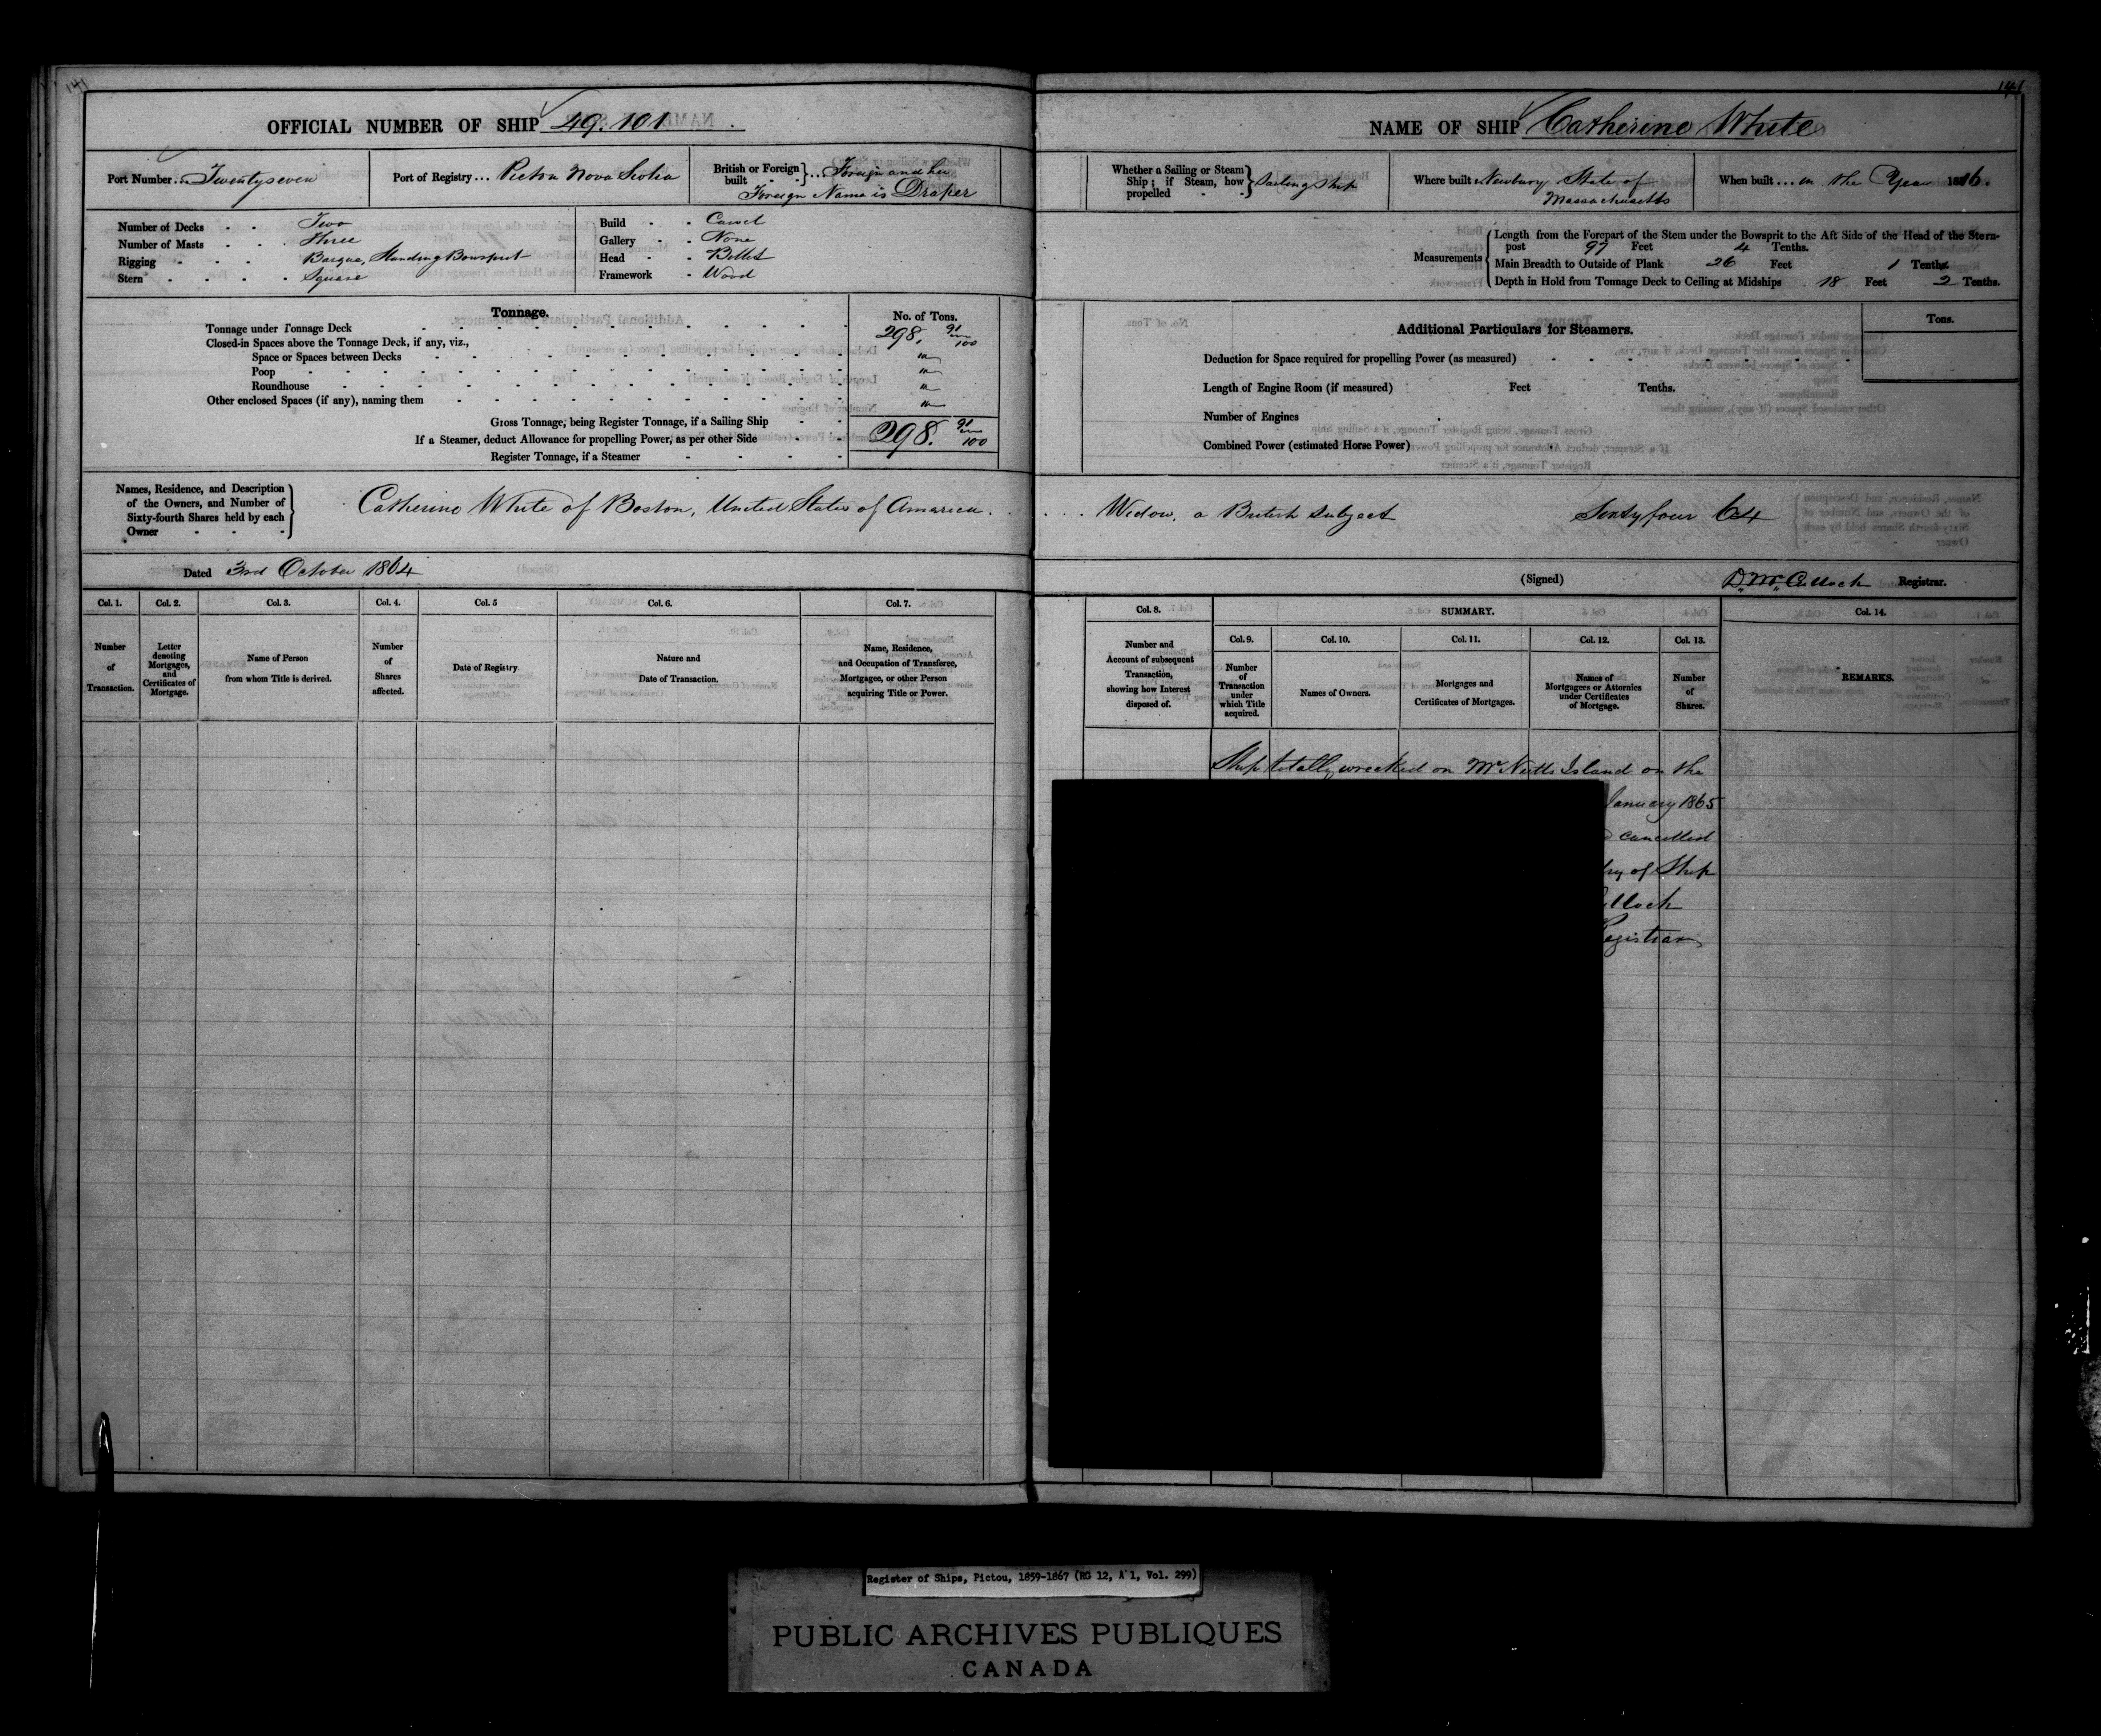 141
OFFICIAL NUMBER OF SHIP 49.101
Port Number... Twentyseven
Port of Registry... Pictou Nova Scotia
British or Foreign built - - } ... Foreign and her
Foreign Name is Draper
Number of Decks - - Two
Number of Masts - - - Three
Rigging - - - - Barque, Standing Bowsprit
Stern - - - - - Square
Build - - Carvel
Gallery - - None
Head - - Billet
Framework - Wood
Tonnage.
No. of Tons.
Tonnage under Tonnage Deck 298. 91/100
Closed-in Spaces above the Tonnage Deck, if any, viz.,
Space or Spaces between Decks
Poop
Roundhouse
Other enclosed Spaces (if any), naming them
Gross Tonnage, being Register Tonnage, if a Sailing Ship
298. 91/100
If a Steamer, deduct Allowance for propelling Power, as per other Side
Register Tonnage, if a Steamer
Names, Residence, and Description
of the Owners, and Number of
Sixty-fourth Shares held by each
Owner
Catherine White of Boston, United States of America.
Dated 3rd October 1864
Col. 1.
Number
of
Transaction.
Col. 2.
Letter
denoting
Mortgages,
and
Certificates of
Mortgage.
Col. 3.
Name of Person
from whom Title is derived.
Col. 4.
Number
of
Shares
affected.
Col. 5
Date of Registry
Col. 6.
Nature and
Date of Transaction.
Col. 7.
Name, Residence,
and Occupation of Transferee,
Mortgagee, or other Person
acquiring Title or Power.
141
NAME OF SHIP Catherine White
Whether a Sailing or Steam
Ship; if Steam, how
propelled - - } Sailing Ship
Where built Newbury State of
Massachusetts
When built... in the Year 1816.
Measurements
Length from the Forepart of the Stem under the Bowsprit to the Aft Side of the Head of the Stern-
post 97 Feet 4 Tenths.
Main Breadth to Outside of Plank 26 Feet 1 Tenths
Depth in Hold from Tonnage Deck to Ceiling at Midships 18 Feet 2 Tenths.
Additional Particulars for Steamers.
Tons.
Deduction for Space required for propelling Power (as measured)
Length of Engine Room (if measured) Feet Tenths.
Number of Engines
Combined Power (estimated Horse Power)
Widow, a British subject Sixty four 64
(Signed) D. McCulloch Registrar.
Col. 8.
Number and
Account of subsequent
Transaction,
showing how Interest
disposed of.
SUMMARY.
Col. 9.
Number
of
Transaction
under
which Title
acquired.
Col. 10.
Names of Owners.
Col. 11.
Mortgages and
Certificates of Mortgages.
Col. 12.
Names of
Mortgagees or Attornies
under Certificates
of Mortgage.
Col. 13.
Number
of
Shares.
Col. 14.
REMARKS.
Ship totally wrecked on McNutts Island on the
January 1865
cancelled
of Ship
Register of Ships, Pictou, 1859-1867 (RG 12, A 1, Vol. 299)
PUBLIC ARCHIVES PUBLIQUES
CANADA